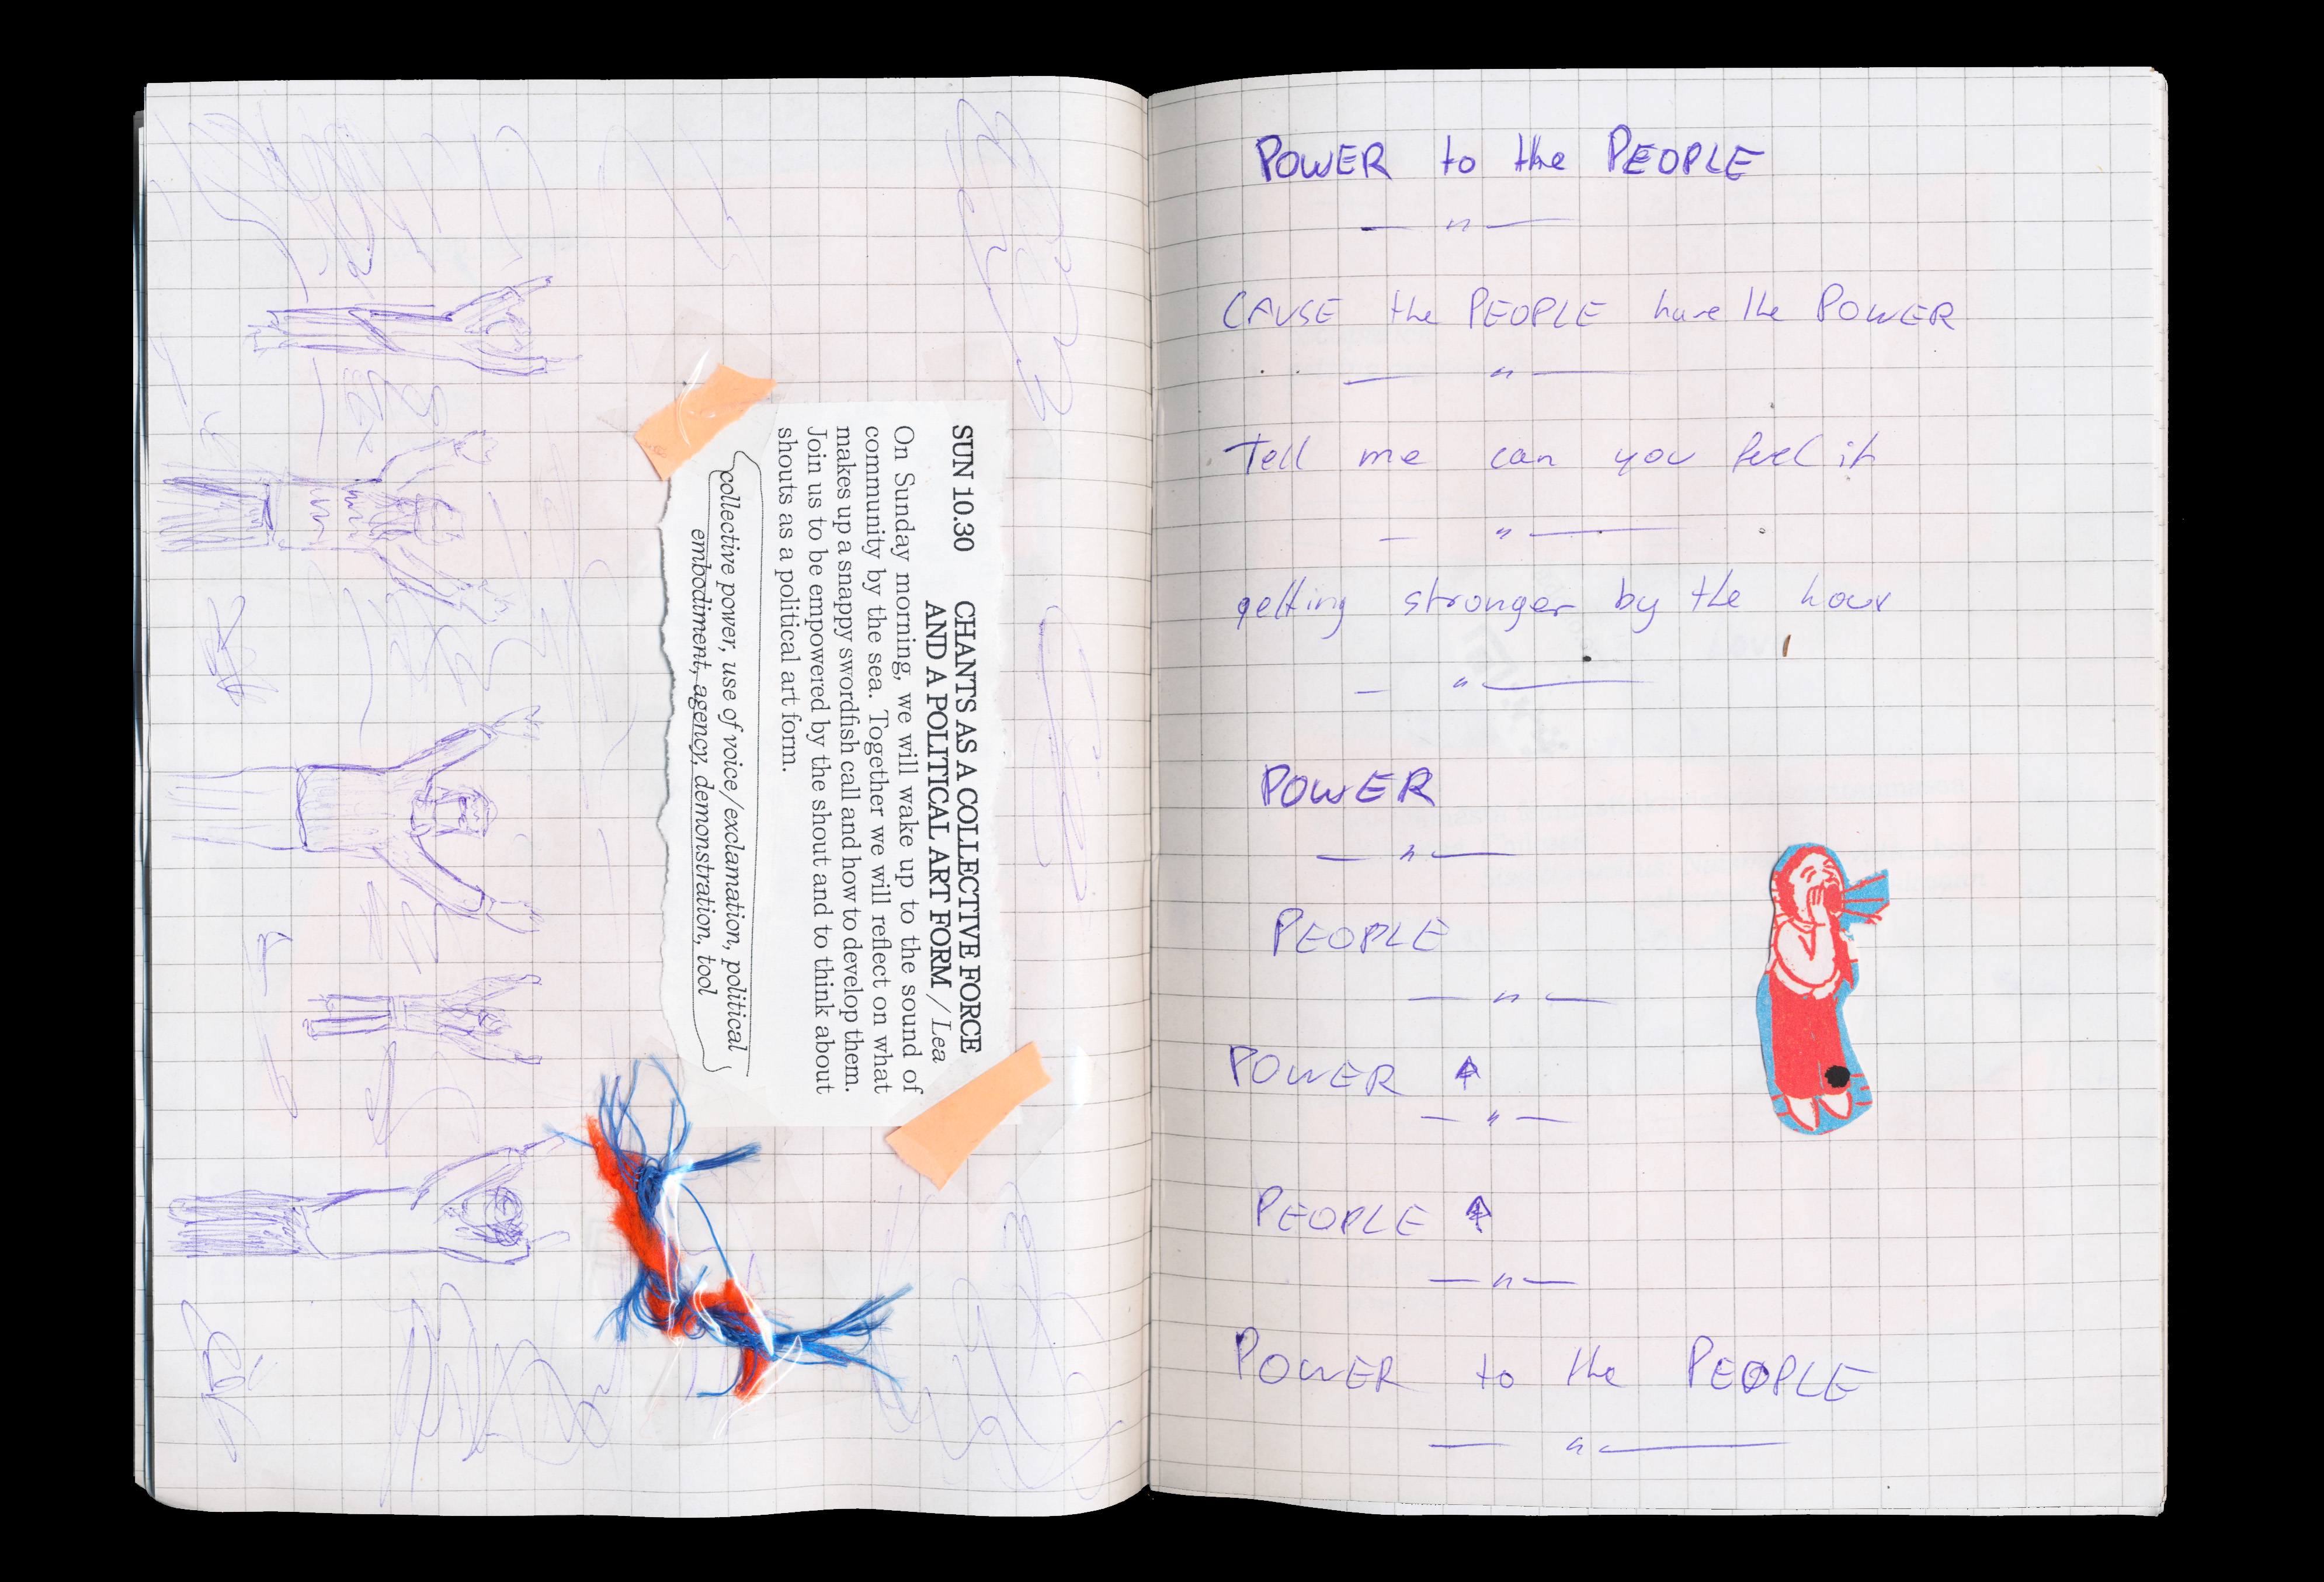 SUN 10.30 CHANTS AS A COLLECTIVE FORCE
AND A POLITICAL ART FORM / Lea
On Sunday morning, we will wake up to the sound of
community by the sea. Together we will reflect on what
makes up a snappy swordfish call and how to develop them.
Join us to be empowered by the shout and to think about
shouts as a political art form.
collective power, use of voice/exclamation, political
embodiment, agency, demonstration, tool
POWER to the PEOPLE
— " —
CAUSE the PEOPLE have the POWER
— " —
Tell me can you feel it
— " —
getting stronger by the hour
— " —
POWER
— " —
PEOPLE
— " —
POWER ↑
— " —
PEOPLE ↑
— " —
POWER to the PEOPLE
— " —